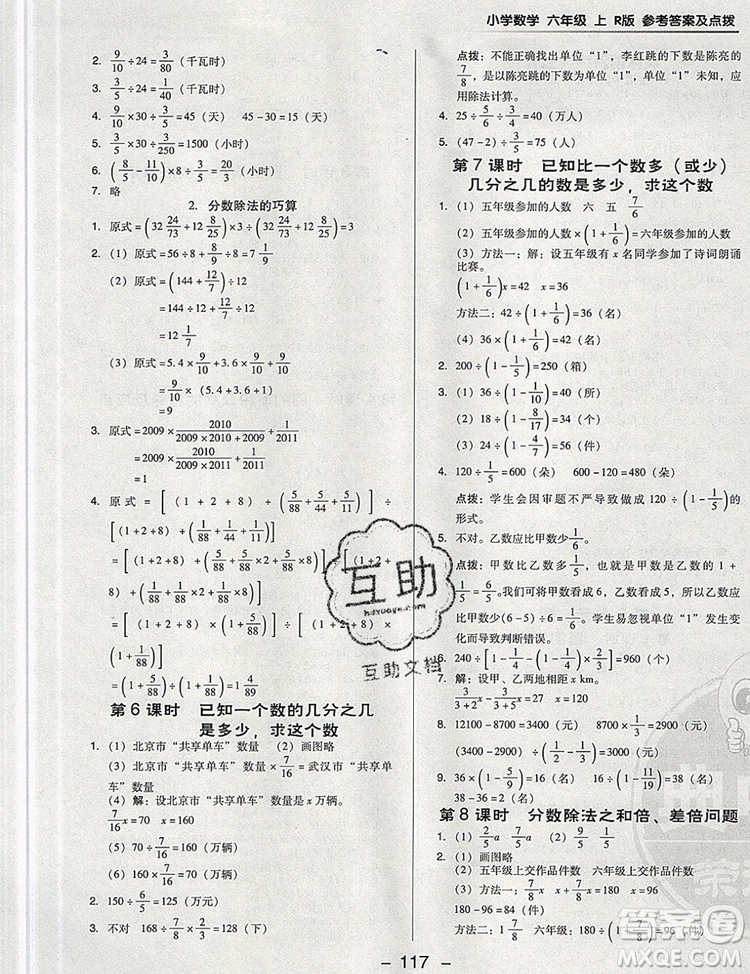 小学数学 六年级 上 R版 参考答案及点拨
2. 9/10÷24=3/80(千瓦时)
3. 3/5÷24=1/40(千瓦时)
4. 9/10×30÷3/5=45(天) 45-30=15(天)
5. 3/5×30÷3/250=1500(小时)
6. (8/5-11/10)×8÷3/5=
7. 略
2. 分数除法的巧算
1. 原式=(32 24/73+12 8/25)×3÷(32 24/73+12 8/25)=3
2. (1) 原式=56÷8+8/9÷8=7 1/9
(2) 原式=(144+12/7)÷12
=144÷12+12/7÷12
=12 1/7
(3) 原式=5.4×9/10+3.6×9/10+9/10
=9/10×(5.4+3.6+1)
=9
3. 原式=2009×2010/(2009×2010+2009)+1/2011
=2010/2011+1/2011
=1
4. 原式=[(1+2+8)+(5/88+5/44+5/11)]÷
[(1+2+8)+(1/88+1/44+1/11)]
=[(1+2+8)+(5/88+5/88×2+5/88×8)]÷[(1+2+
8)+(1/88+1/88×2+1/88×8)]
=[(1+2+8)×(1+5/88)]÷[(1+2+8)×
(1+1/88)]
=(1+5/88)÷(1+1/88)=1 4/89
第6课时 已知一个数的几分之几
是多少,求这个数
1. (1) 北京市“共享单车”数量 (2) 画图略
(3) 北京市“共享单车”数量×7/16=武汉市“共享单
车”数量
(4) 解:设北京市“共享单车”数量是x万辆。
7/16x=70 x=160
(5) 70÷7/16=160(万辆)
(6) 160×7/16=70(万辆)
2. 150÷6/5=125(元)
3. 不对 168÷7/8×2/3=128(下)
点拨:不能正确区分单位“1”,李红跳的下数是陈亮的
7/8,是以陈亮跳的下数为单位“1”,单位“1”未知,应
用除法计算。
4. 25÷5/6÷3/4=40(万人)
5. (47-2)÷3/5=75(人)
第7课时 已知比一个数多(或少)
几分之几的数是多少,求这个数
1. (1) 五年级参加的人数 六 五 7/6
(2) 五年级参加的人数×(1+1/6)=六年级参加的人数
(3) 方法一:解:设五年级有x名同学参加了诗词朗诵
比赛。
(1+1/6)x=42 x=36
方法二:42÷(1+1/6)=36(名)
(4) 36×(1+1/6)=42(名)
2. 200÷(1-1/5)=250(箱)
3. (1) 36÷(1-1/10)=40(所)
(2) 18÷(1-8/17)=34(首)
(3) 24÷(1-4/7)=56(件)
4. 120÷1/5=600(朵) 600-120=480(朵)
点拨:学生会因审题不严而导致做成120÷(1-1/5)的
形式。
5. 不对。乙数应比甲数少1/6。
点拨:甲数比乙数多1/5,也就是甲数是乙数的
1+1/5=6/5。我们可以将甲数看成6,乙数看成5,乙数
比甲数少(6-5)÷6=1/6。学生易忽视单位“1”发生变
化而导致判断错误。
6. 240÷[1-1/4-(1-1/4)×2/3]=960(个)
7. 解:设甲、乙两地相距x km。
3/(3+2)x-1/2x=35 x=350
8. 12100-8700=3400(元) 8700÷(1-1/30)=9000(元)
(3400-2150)÷(9000-2150)=
9. 36×(1-5/9)=16(名) 16÷(1-11/19)=38(名)
38-36=2(名)
第8课时 分数除法之和倍、差倍问题
1. (1) 2/5a 7/5a (2) 9/5 1/5
2. (1) 画图略
(2) 五年级上交作品件数 六年级上交作品件数
(3) 方法一:解:设六年级上交了x件。x+7/8x=180 x=96
180-96=84(件)
方法二:180÷(1+7/8)=96(件)
- 117 -
互助
hdzuoye.com
互助文档
答案圈
MXQE.COM